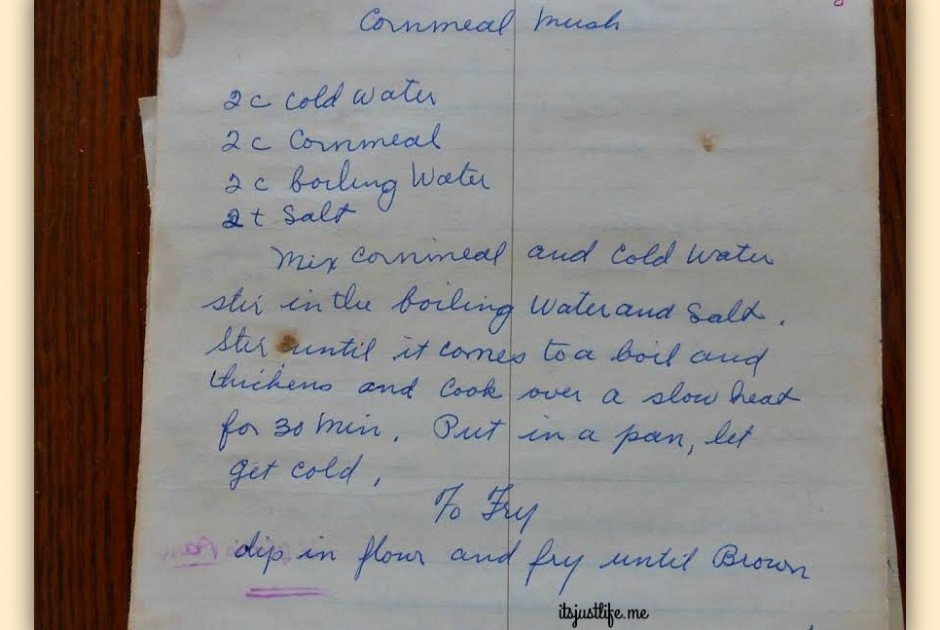 Cornmeal Mush
2 c cold water
2 c Cornmeal
2 c boiling Water
2 t Salt
Mix cornmeal and cold water
stir in the boiling Water and Salt.
Stir until it comes to a boil and
thickens and cook over a slow heat
for 30 min. Put in a pan, let
get cold,
To Fry
dip in flour and fry until Brown
itsjustlife.me